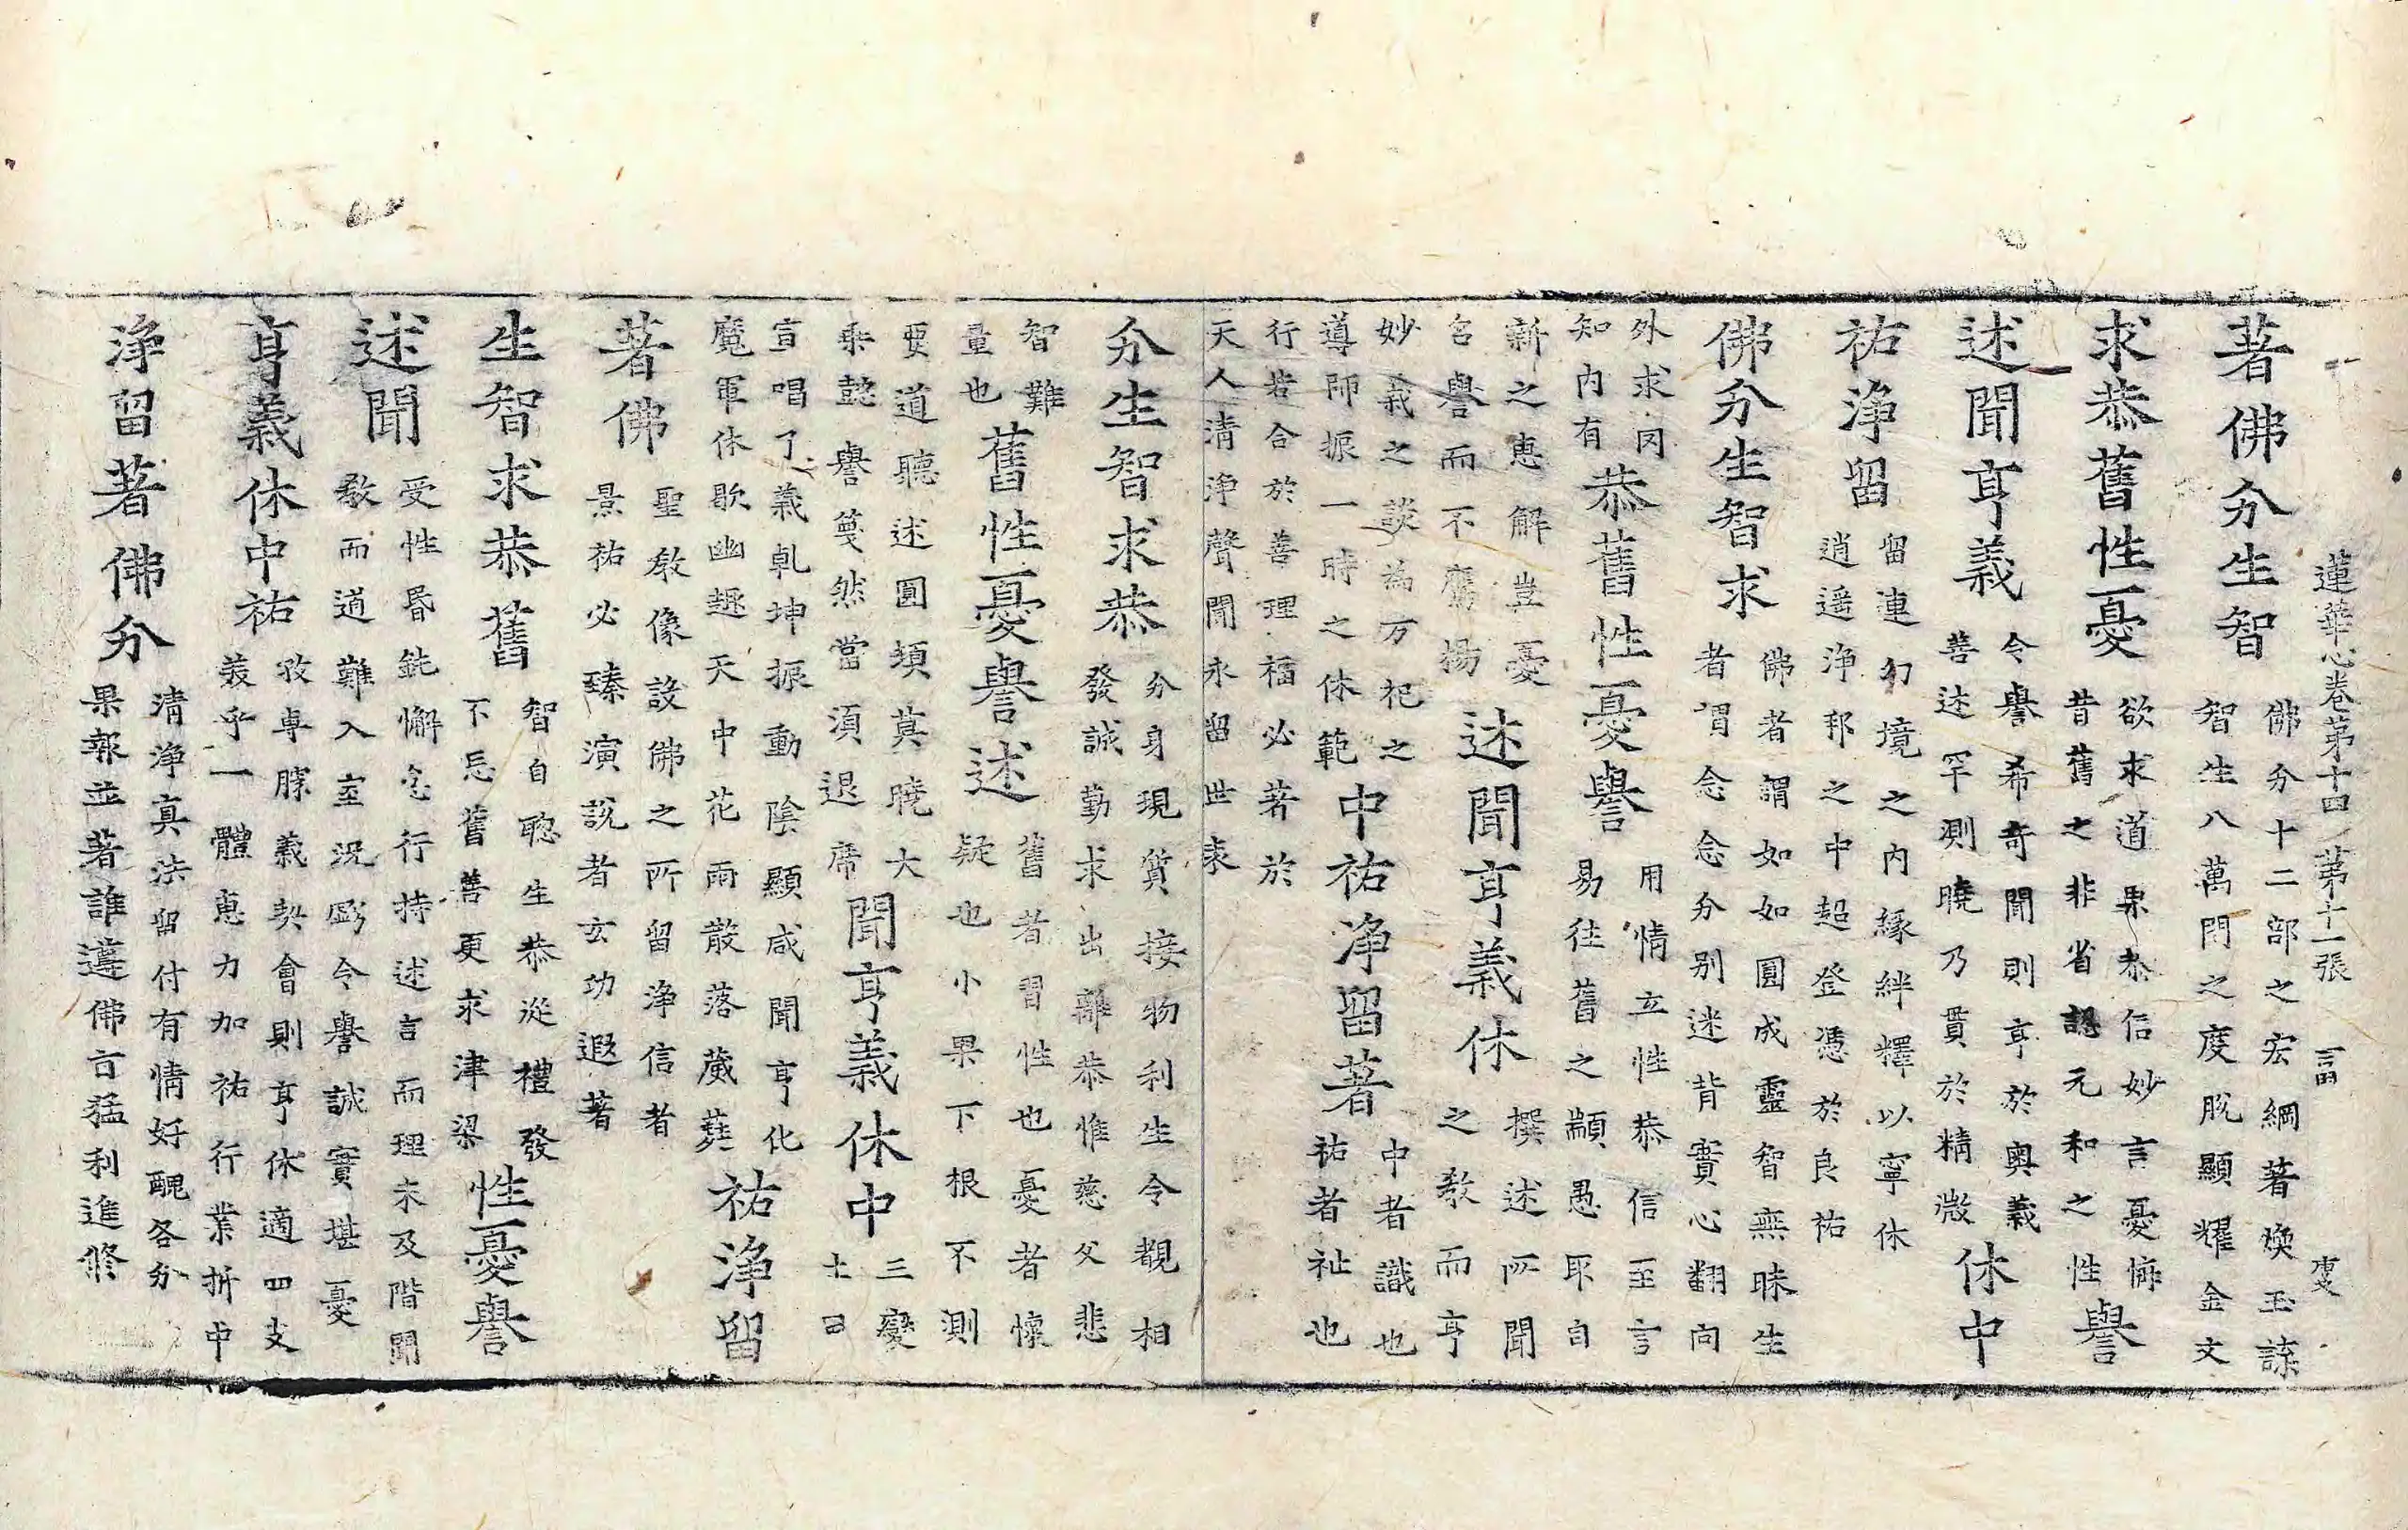 蓮華心卷第十四 第十一張
著佛分生智 佛分十二部之宏綱著煥玉
智生八萬門之度脫顯耀金文
求恭舊性憂 欲求道果恭信妙言憂悔
昔舊之非省認元和之性 譽
述聞亨義 令譽希奇聞則亨於奧義
善述罕測曉乃貫於精微 休中
祐淨留 留連幻境之內緣絆釋以寧休
逍遥淨邦之中超登憑於良祐
佛分生智求 佛者謂如如圓成靈智無昧生
者謂念念分別迷背實心翻向
外求罔
知內有 恭舊性憂譽 用情立性恭信至言
易往舊之顓愚取自
新之惠解豈憂
名譽而不鷹揚 述聞亨義休 撰述所聞
之教而亨
妙義之談為万祀之
導師振一時之休範 中祐淨留著 中者識也
祐者祉也
行若合於善理福必著於
天人清淨聲聞永留世表
分生智求恭 分身現質接物利生令覩相
發誠勤求出離恭惟慈父悲
智難
量也 舊性憂譽述 舊者習性也憂者懷
疑也小果下根不測
要道聽述圓頓莫曉大
乘懿譽蔑然當須退席 聞亨義休中 三變
土田
宣唱了義乹坤振動陰顯咸聞亨化
魔軍休歇幽趣天中花雨散落葳蕤 祐淨留
著佛 聖教像設佛之所留淨信者
景祐必臻演說者玄功遐著
生智求恭舊 智自聦生恭從禮發
不忘舊善更求津梁 性憂譽
述聞 受性昏鈍懈怠行持述言而理未及階聞
教而道難入室況彰令譽誠實堪憂
亨義休中祐 孜專勝義契會則亨休適四支
羙乎一體惠力加祐行業折中
淨留著佛分 清淨真法留付有情好醜各分
果報並著誰遵佛言猛利進修